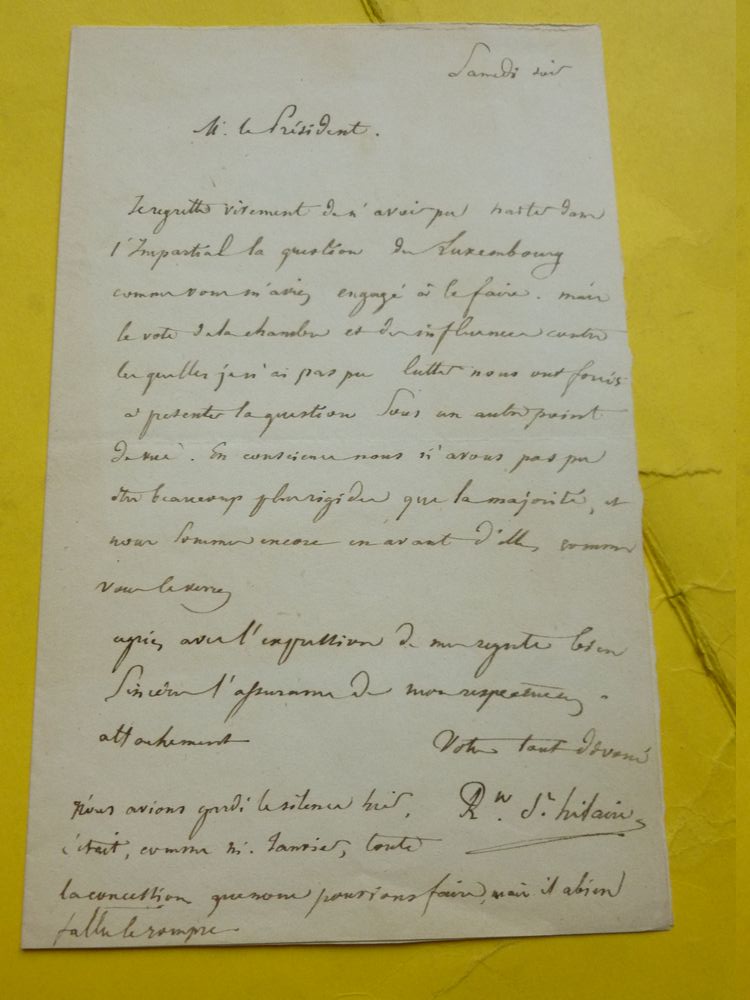 Samedi soir
M. le Président.
Je regrette vivement de n'avoir pu traiter dans
l'Impartial la question du Luxembourg
comme vous m'aviez engagé à le faire. mais
le vote de la chambre et des influences contre
lesquelles je n'ai pas pu lutter nous ont forcés
a presenter la question sous un autre point
de vue. En conscience nous n'avons pas pu
être beaucoup plus rigides que la majorité, et
nous sommes encore en avant d'elle, comme
vous le verrez
agréez avec l'expression de mon regrets bien
sincères l'assurance de mon respectueux
attachement
Votre tout dévoué
Rw. St hilaire
Nous avions gardé le silence hier,
c'était, comme M. Janvier, toute
la concession que nous pouvions faire, mais il a bien
fallu le rompre.